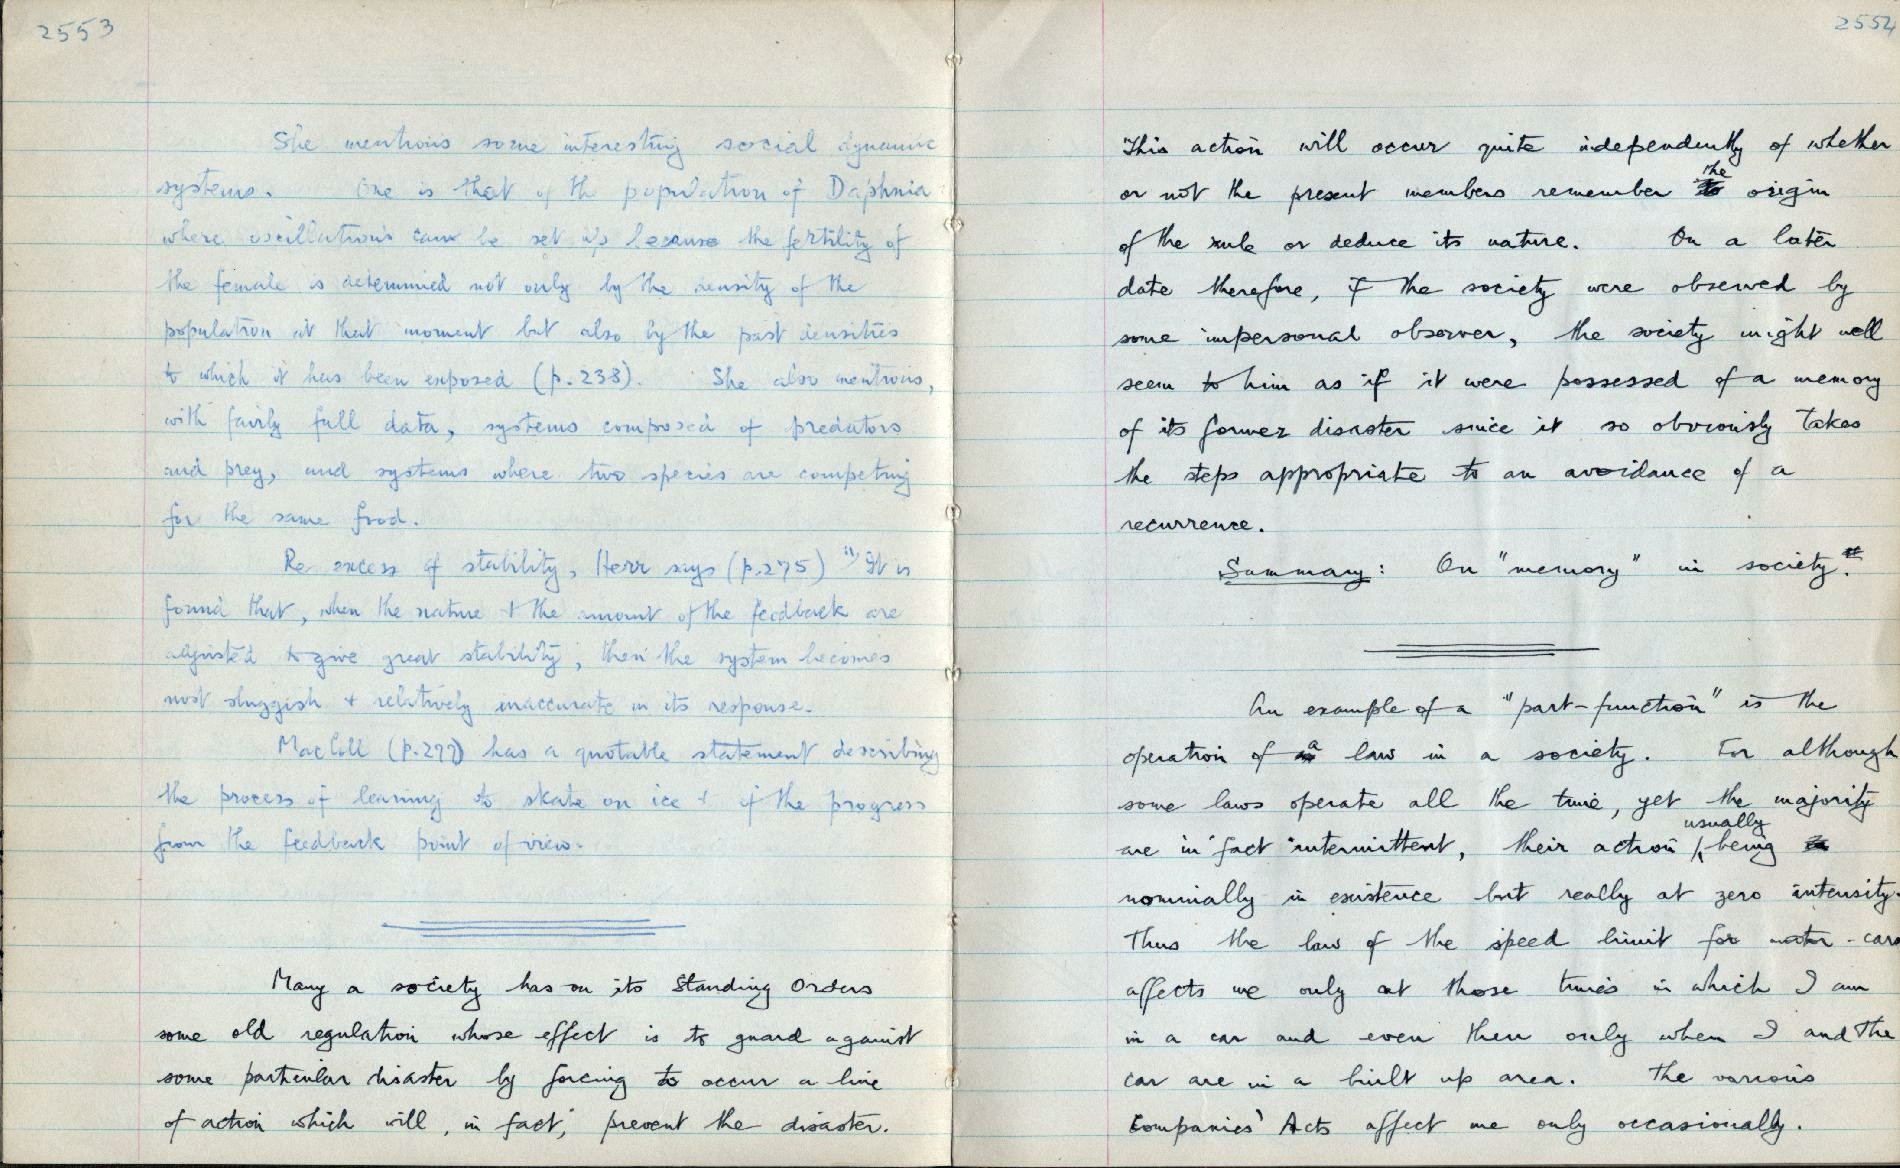 2553
She mentions some interesting social dynamic
systems. One is that of the population of Daphnia
where oscillations can be set up because the fertility of
the female is determined not only by the density of the
population at that moment but also by the past densities
to which it has been exposed (p.238). She also mentions,
with fairly full data, systems composed of predators
and prey, and systems where two species are competing
for the same food.
Re excess of stability, Herr says (p.275) "It is
found that, when the nature + the amount of the feedback are
adjusted to give great stability, then the system becomes
most sluggish + relatively inaccurate in its response.
MacColl (p.277) has a quotable statement describing
the process of learning to skate on ice + of the progress
from the feedback point of view.
Many a society has on its Standing Orders
some old regulation whose effect is to guard against
some particular disaster by forcing to occur a line
of action which will, in fact, prevent the disaster.
2554
This action will occur quite independently of whether
or not the present members remember the origin
of the rule or deduce its nature. On a later
date therefore, if the society were observed by
some impersonal observer, the society might well
seem to him as if it were possessed of a memory
of its former disaster since it so obviously takes
the steps appropriate to an avoidance of a
recurrence.
Summary: On "memory" in society.
An example of a "part-function" is the
operation of a law in a society. For although
some laws operate all the time, yet the majority
are in fact intermittent, their action usually being
nominally in existence but really at zero intensity.
Thus the law of the speed limit for motor-cars
affects me only at those times in which I am
in a car and even then only when I and the
car are in a built up area. The various
Companies' Acts affect me only occasionally.